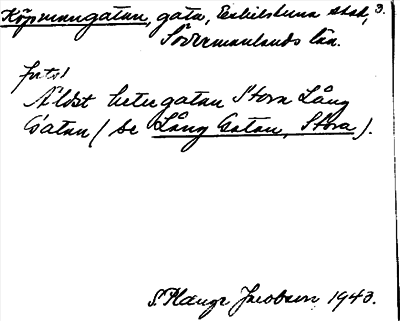 Köpmangatan, gata, Eskilstuna stad, 3.
Södermanlands län.
forts!
Äldst heter gatan Stora Lång
Gatan (se Lång Gatan, Stora).
S. Hauge Jacobson 1943.